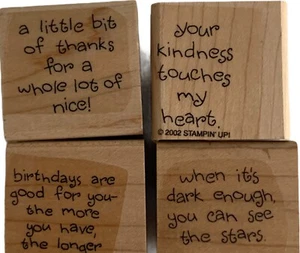 a little bit
of thanks
for a
whole lot of
nice!
your
kindness
touches
my
heart.
© 2002 STAMPIN' UP!
birthdays are
good for you-
the more
you have,
the longer
when it's
dark enough,
you can see
the stars.